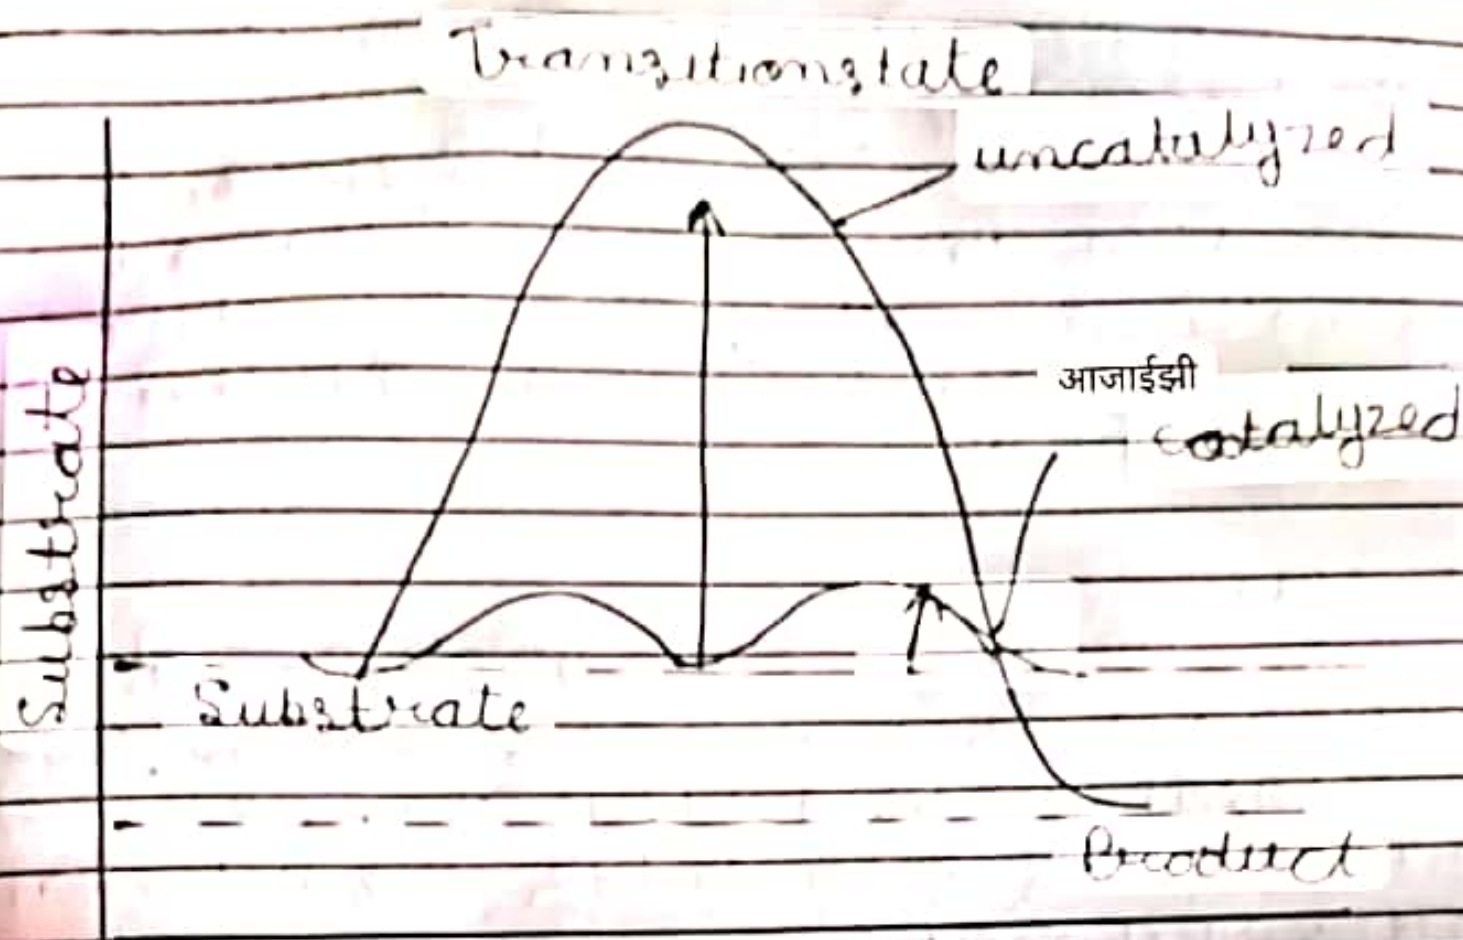 Tranzitionstate
uncatalyzed
आजाईझी
catalyzed
Substrate
Substrate
Product